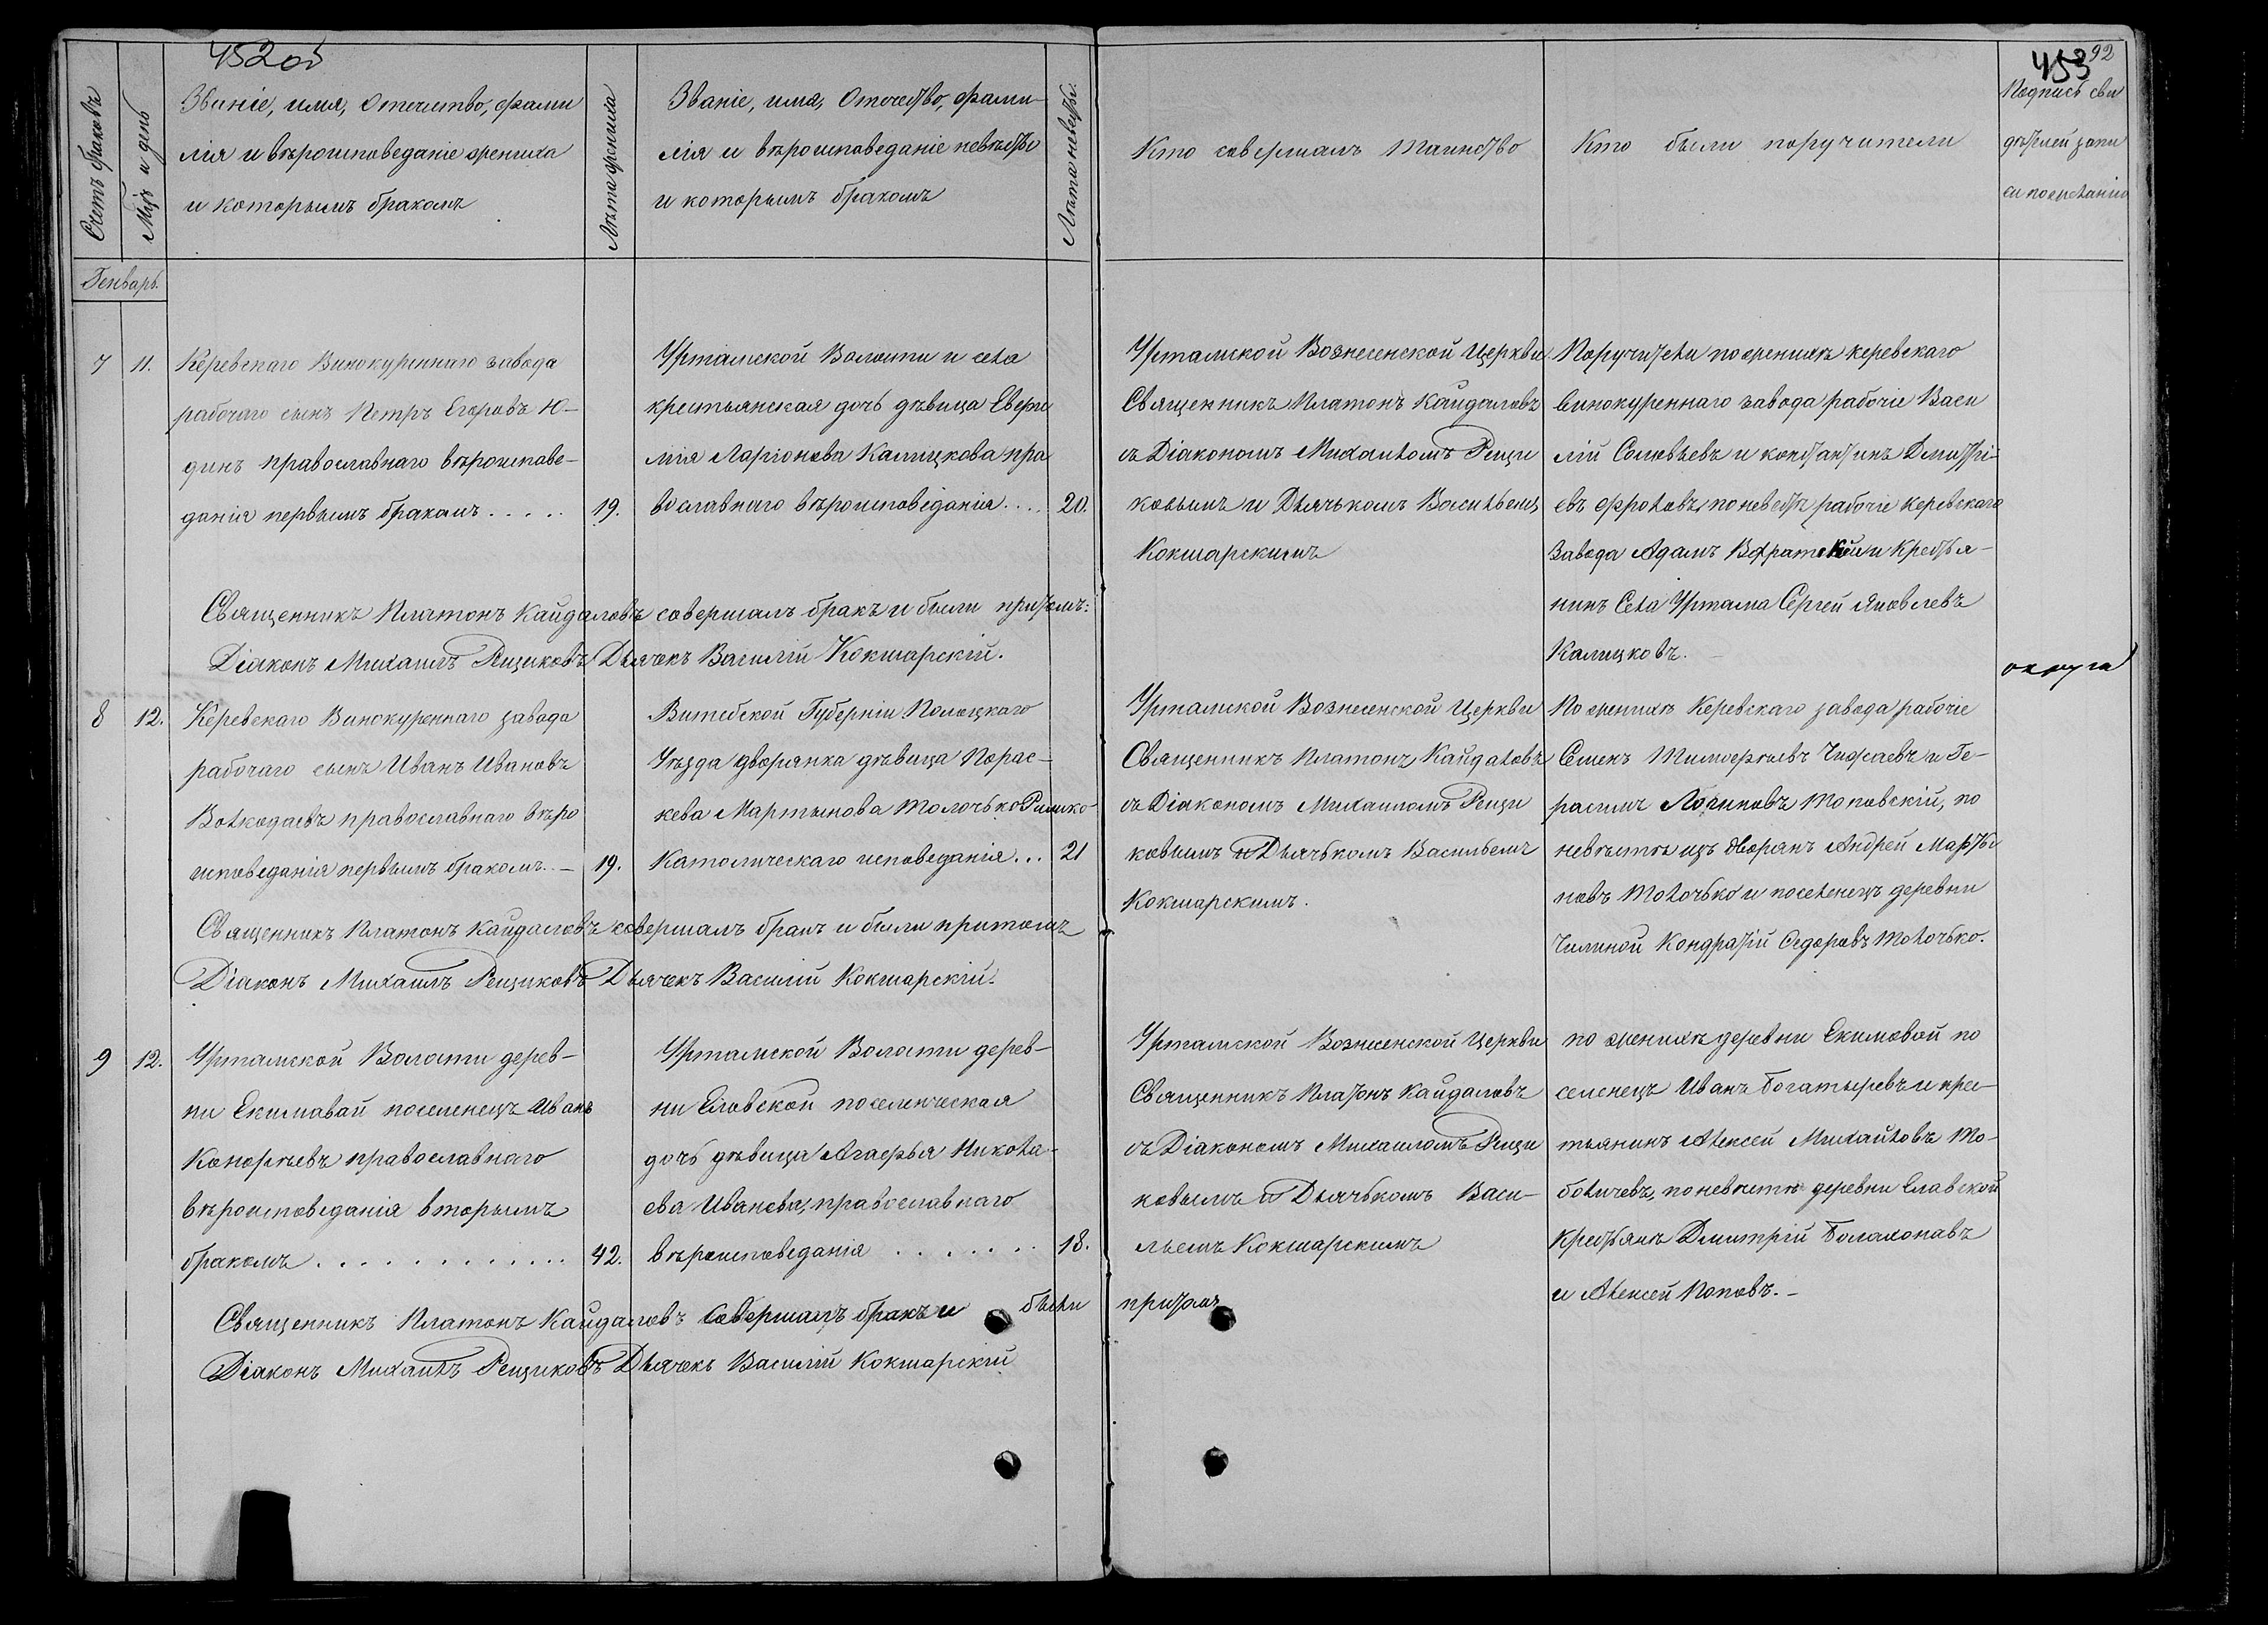 452 об
453
92
Счетъ браковъ
Мцъ и день
Званіе, имя, Отечество, фами
лія и вѣроисповеданіе жениха
и которымъ бракомъ
Лѣта жениха
Званіе, имя, Отечество, фами-
лія и вѣроисповеданіе невѣсты
и которымъ бракомъ
Лѣта невесты.
Кто совершалъ таинство
Кто были поручители
Подпись сви
дѣтелей запи
си по желанію
Генварь.
7
11.
Керевскаго Винокуреннаго завода
рабочаго сынъ Петръ Егоровъ Ю-
динъ православнаго вѣроисповѣ-
данія первымъ бракомъ . . . . .
19.
Уртамской Волости и села
крестьянская дочь дѣвица Евфи
мія Ларіонова Калицкова пра
вославнаго вѣроисповѣданія . . . .
20.
Уртамской Вознесенской Церкви
Священникъ Платонъ Кайдаловъ
съ Діакономъ Михаиломъ Рещи
ковымъ и Дьячькомъ Васильемъ
Кокшарскимъ
Поручители по женихѣ керевскаго
винокуреннаго завода рабочіе Васи
лій Соловьевъ и константинъ Дмитрі-
евъ Фроловъ, по невестѣ рабочіе керевскаго
завода Адамъ и Кресьтя-
нинъ Села Уртама Сергей Яковлевъ
Калицковъ.
Священникъ Платонъ Кайдаловъ совершалъ бракъ и были притомъ:
Діаконъ Михаилъ Рещиковъ Дьячекъ Василій Кокшарскій.
8
12.
Керевскаго Винокуреннаго завода
рабочаго сынъ Иванъ Ивановъ
православнаго вѣро
исповеданія первымъ бракомъ. . –
19.
Витебской Губерніи Полоцкаго
Уѣзда дворянка дѣвица Порас-
кева Мартынова Толочько Римско-
Католическаго исповеданія . . .
21
Уртамской Вознесенской Церкви
Священникъ Платонъ Кайдаловъ
съ Діакономъ Михаиломъ Рещи
ковымъ и Дьячькомъ Васильемъ
Кокшарскимъ.
По женихѣ Керевскаго завода рабочіе
Семенъ Тимофѣевъ и Ге-
расимъ Логиновъ Топовскій, по
невѣстѣ изъ дворянъ Андрей Марты
новъ Толочько и поселенецъ деревни
Чилиной Кондратій Федоровъ Толочько.
Священникъ Платонъ Кайдаловъ совершалъ бракъ и были притомъ
Діаконъ Михаилъ Рещиковъ Дьячекъ Василій Кокшарскій.
9
12.
Уртамской Волости дерев-
ни Екимавай поселенецъ Иванъ
Конофѣевъ православнаго
вѣроисповеданія вторымъ
бракомъ . . . . . . . . . . . .
42.
Уртамской Волости дерев-
ни Еловской поселенческая
дочь дѣвица Агафья Никола-
ева Иванова, православнаго
вѣроисповеданія . . . . . . .
18.
Уртамской Вознесенской Церкви
Священникъ Платонъ Кайдаловъ
съ Діакономъ Михаиломъ Рещи
ковымъ и Дьячькомъ Васи-
льемъ Кокшарскимъ
по женихѣ деревни Екимовой по
селенецъ Иванъ Богатыревъ и крес-
тьянинъ Алексей Михайловъ То-
боличевъ, по невѣстѣ деревни Елавской
Кресьтянъ Дмитрій Болахонавъ
и Алексей Поповъ. –
Священникъ Платонъ Кайдаловъ совершалъ бракъ и были притомъ
Діаконъ Михаилъ Рещиковъ Дьячекъ Василій Кокшарскій